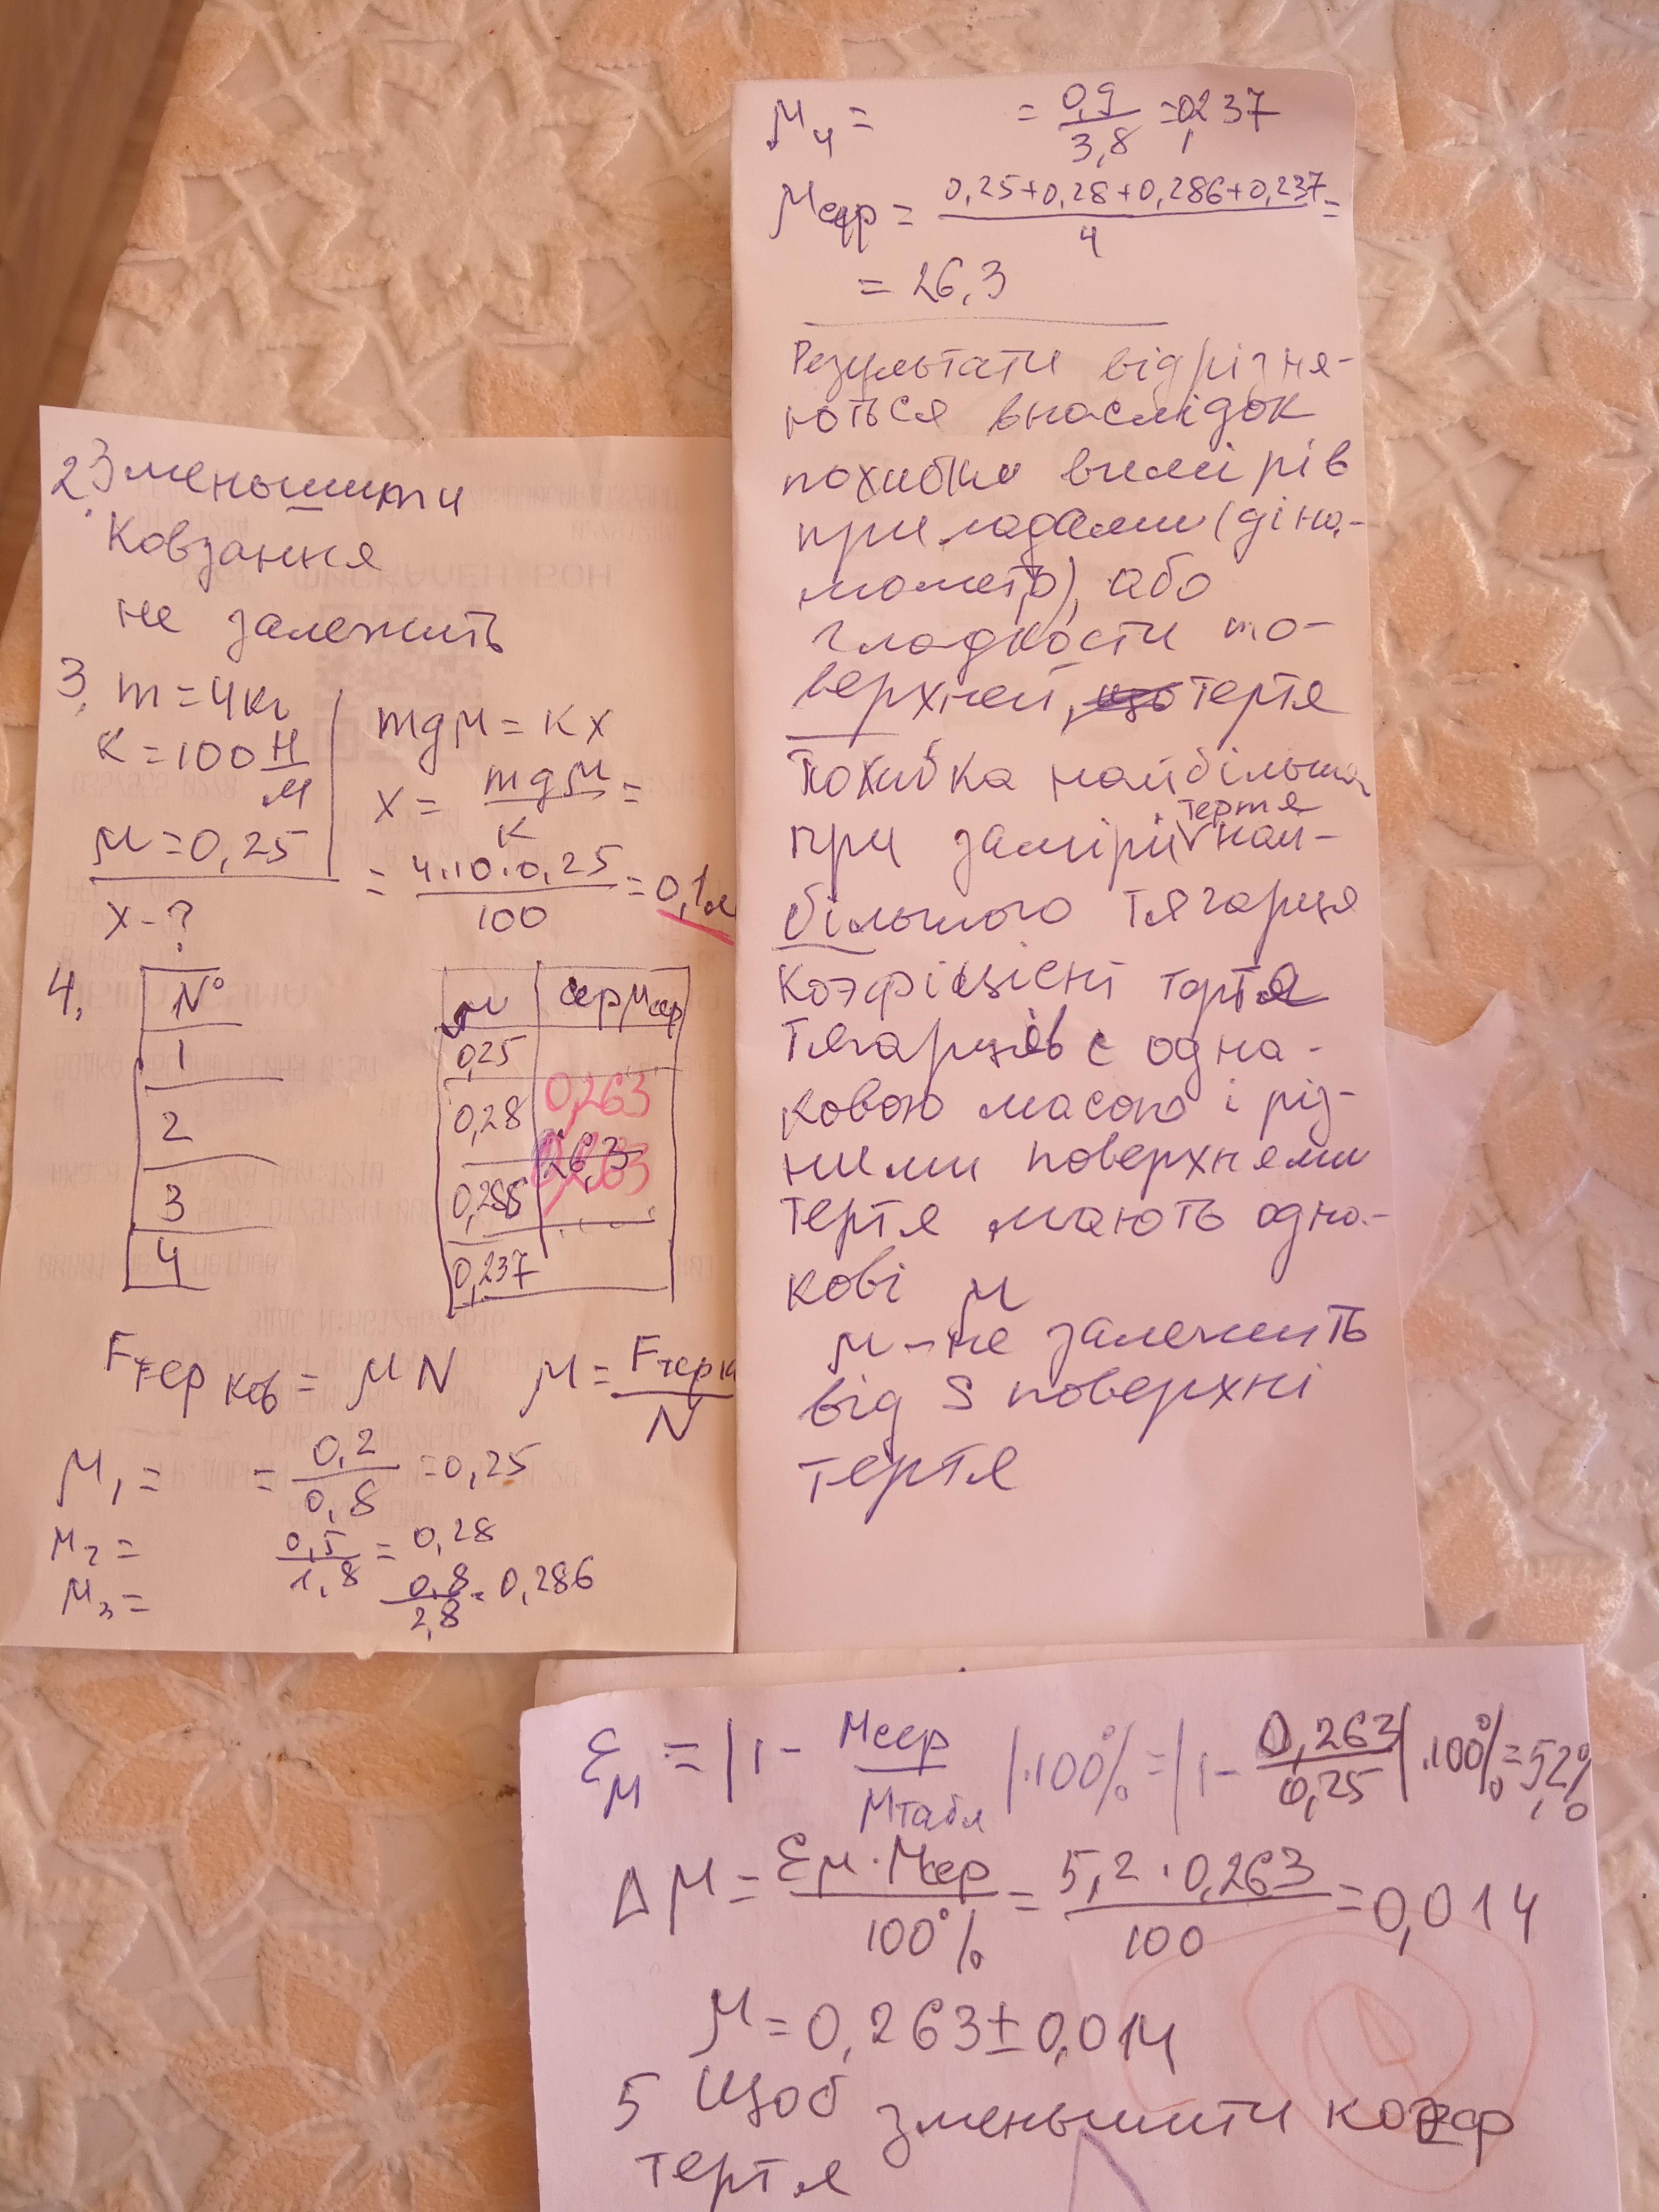 2. Зменьшити
Ковзання
не залежить
3. m = 4кг
K = 100 Н/м
μ = 0,25
x - ?
mgμ = Kx
x = mgμ/K =
= 4·10·0,25/100 = 0,1м
4.
№ μ сер μсер
1 0,25
2 0,28 0,263
3 0,286 26,3 0,263
4 0,237
Fтер ков = μN μ = Fтер к/N
μ₁ = = 0,2/0,8 = 0,25
μ₂ = 0,5/1,8 = 0,28
μ₃ = 0,8/2,8 = 0,286
μ₄ = = 0,9/3,8 = 0,237
μсер = 0,25+0,28+0,286+0,237/4 =
= 26,3
Результати відрізня-
ються внаслідок
похибки вимірів
приладами (діна-
мометр), або
гладкости по-
верхней, тертя
Похибка найбільша
при замірі тертя най-
більшого тягарця
Коэфіцієнт тертя
Тягарців с одна-
ковою масою і різ-
ними поверхнями
тертя мають одна-
кові μ
μ - не залежить
від S поверхні
тертя
εμ = |1 - μсер/μтабл|·100% = |1 - 0,263/0,25|·100% = 5,2%
Δμ = εμ·μсер/100% = 5,2·0,263/100 = 0,014
μ = 0,263 ± 0,014
5 Щоб зменьшити коэф
тертя